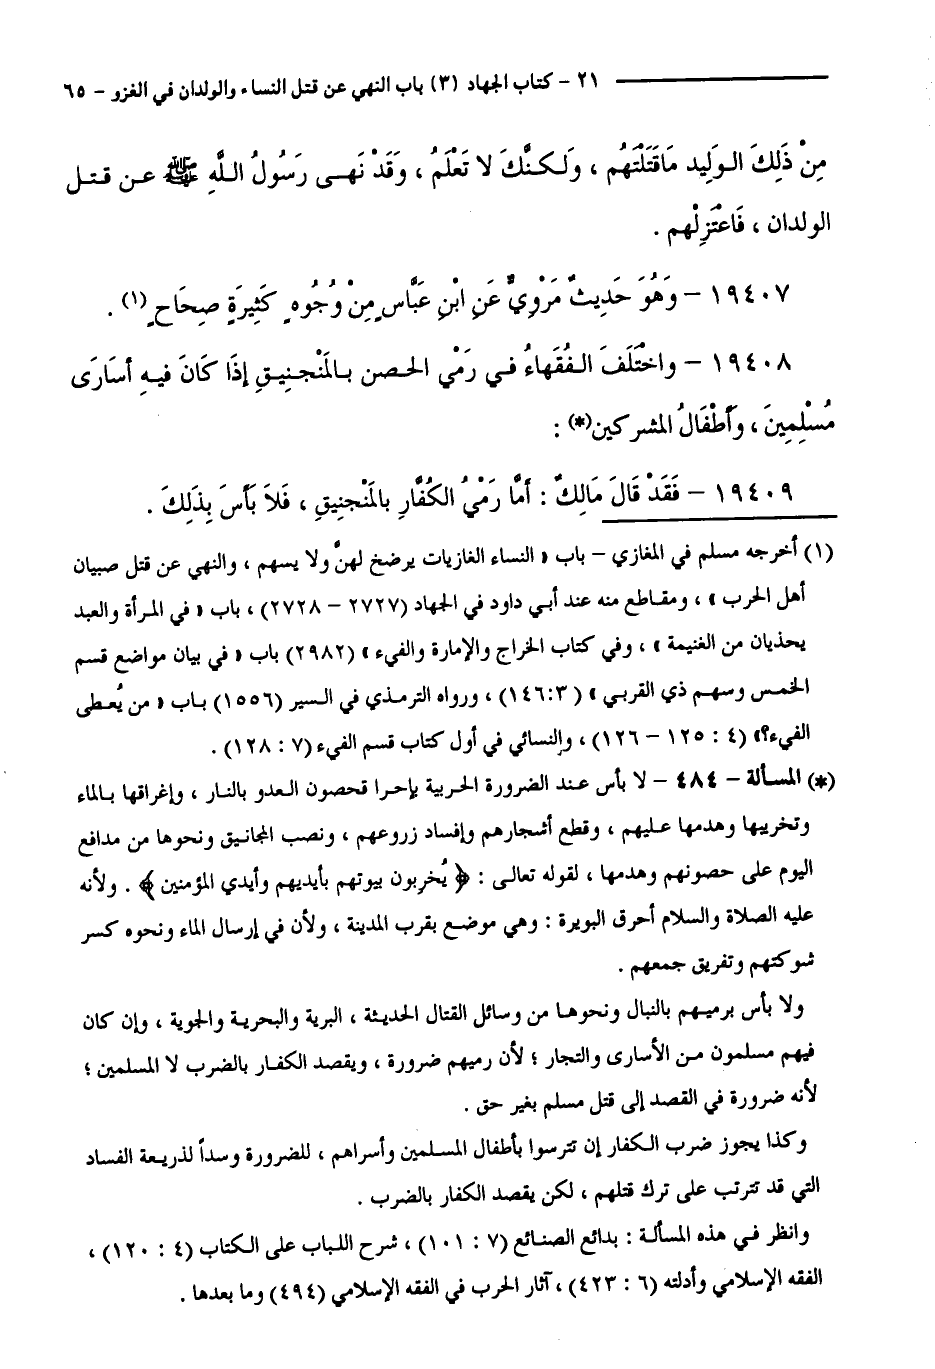 ٢١ – كتاب الجهاد (٣) باب النهي عن قتل النساء والولدان في الغزو – ٦٥
مِنْ ذَلِكَ الوَلِيد مَاقَتَلْتَهُم ، وَلَكنَّكَ لا تَعْلَمُ ، وَقَدْ نَهى رَسُولُ اللَّهِ ﷺ عن قتل
الولدان ، فَاعْتَزِلْهم .
١٩٤٠٧ – وَهُوَ حَدِيثٌ مَرْوِيٌّ عَنِ ابْنِ عَبَّاسٍ مِنْ وُجُوهٍ كَثِيرَةٍ صِحَاحٍ (١) .
١٩٤٠٨ – واخْتَلَفَ الفُقَهاءُ في رَمْي الحصن بالمَنْجنِيقِ إذَا كَانَ فيهِ أسَارَى
مُسْلِمِينَ ، وَأَطْفَالُ المشركين(*) :
١٩٤٠٩ – فَقَدْ قَالَ مَالِكٌ : أمَّا رَمْيُ الكُفَّارِ بالمَنْجنيقِ ، فَلاَ بَأسَ بِذَلِكَ .
(١) أخرجه مسلم في المغازي – باب « النساء الغازيات يرضخ لهنَّ ولا يسهم ، والنهي عن قتل صبيان
أهل الحرب » ، ومقاطع منه عند أبي داود في الجهاد (٢٧٢٧ – ٢٧٢٨) ، باب « في المرأة والعبد
يحذيان من الغنيمة » ، وفي كتاب الخراج والإمارة والفيء » (٢٩٨٢) باب « في بيان مواضع قسم
الخمس وسهم ذي القربي » (١٤٦:٣) ، ورواه الترمذي في السير (١٥٥٦) باب « من يُعطى
الفيء؟» (٤ : ١٢٥ – ١٢٦) ، والنسائي في أول كتاب قسم الفيء (٧ : ١٢٨) .
(*) المسألة – ٤٨٤ – لا بأس عند الضرورة الحربية بإحرا قحصون العدو بالنار ، وإغراقها بالماء
وتخريبها وهدمها عليهم ، وقطع أشجارهم وإفساد زروعهم ، ونصب المجانيق ونحوها من مدافع
اليوم على حصونهم وهدمها ، لقوله تعالى : ﴿ يُخربون بيوتهم بأيديهم وأيدي المؤمنين ﴾ . ولأنه
عليه الصلاة والسلام أحرق البويرة : وهي موضع بقرب المدينة ، ولأن في إرسال الماء ونحوه كسر
شوكتهم وتفريق جمعهم .
ولا بأس برميهم بالنبال ونحوها من وسائل القتال الحديثة ، البرية والبحرية والجوية ، وإن كان
فيهم مسلمون من الأسارى والتجار ؛ لأن رميهم ضرورة ، ويقصد الكفار بالضرب لا المسلمين ؛
لأنه ضرورة في القصد إلى قتل مسلم بغير حق .
وكذا يجوز ضرب الكفار إن تترسوا بأطفال المسلمين وأسراهم ، للضرورة وسداً لذريعة الفساد
التي قد تترتب على ترك قتلهم ، لكن يقصد الكفار بالضرب .
وانظر في هذه المسألة : بدائع الصنائع (٧ : ١٠١) ، شرح اللباب على الكتاب (٤ : ١٢٠) ،
الفقه الإسلامي وأدلته (٦ : ٤٢٣) ، آثار الحرب في الفقه الإسلامي (٤٩٤) وما بعدها .